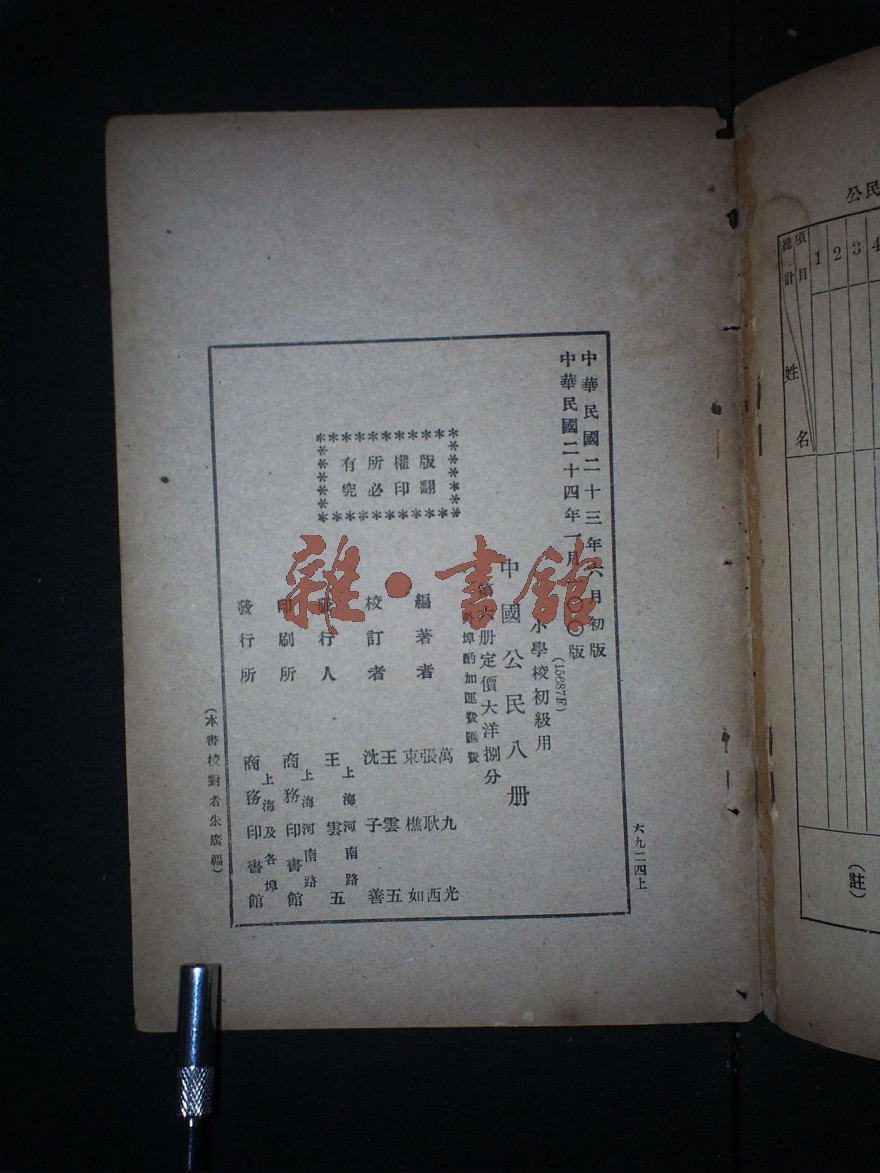 公民
項目
總計
姓名
1 2 3 4
(註)
中華民國二十三年六月初版
中華民國二十四年一月一〇〇版
(15687F)
小學校初級用
中國公民八册
册定價大洋捌分
外埠酌加運費匯費
版權所有
翻印必究
編著者
萬九光
張耿西
束樵如
校訂者
王雲五
沈子善
發行人
上海河南路
王雲五
印刷所
上海河南路
商務印書館
發行所
上海及各埠
商務印書館
(本書校對者朱廣福)
六九二四上
雜·書館